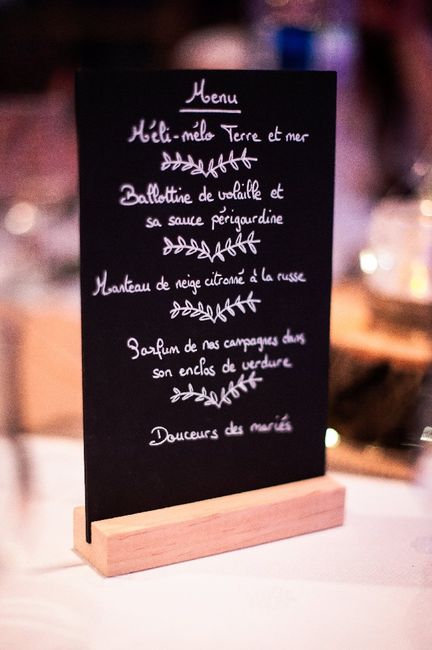 Menu
Méli-mélo Terre et mer
Ballottine de volaille et
sa sauce périgourdine
Manteau de neige citronné à la russe
Parfum de nos campagnes dans
son enclos de verdure
Douceurs des mariés